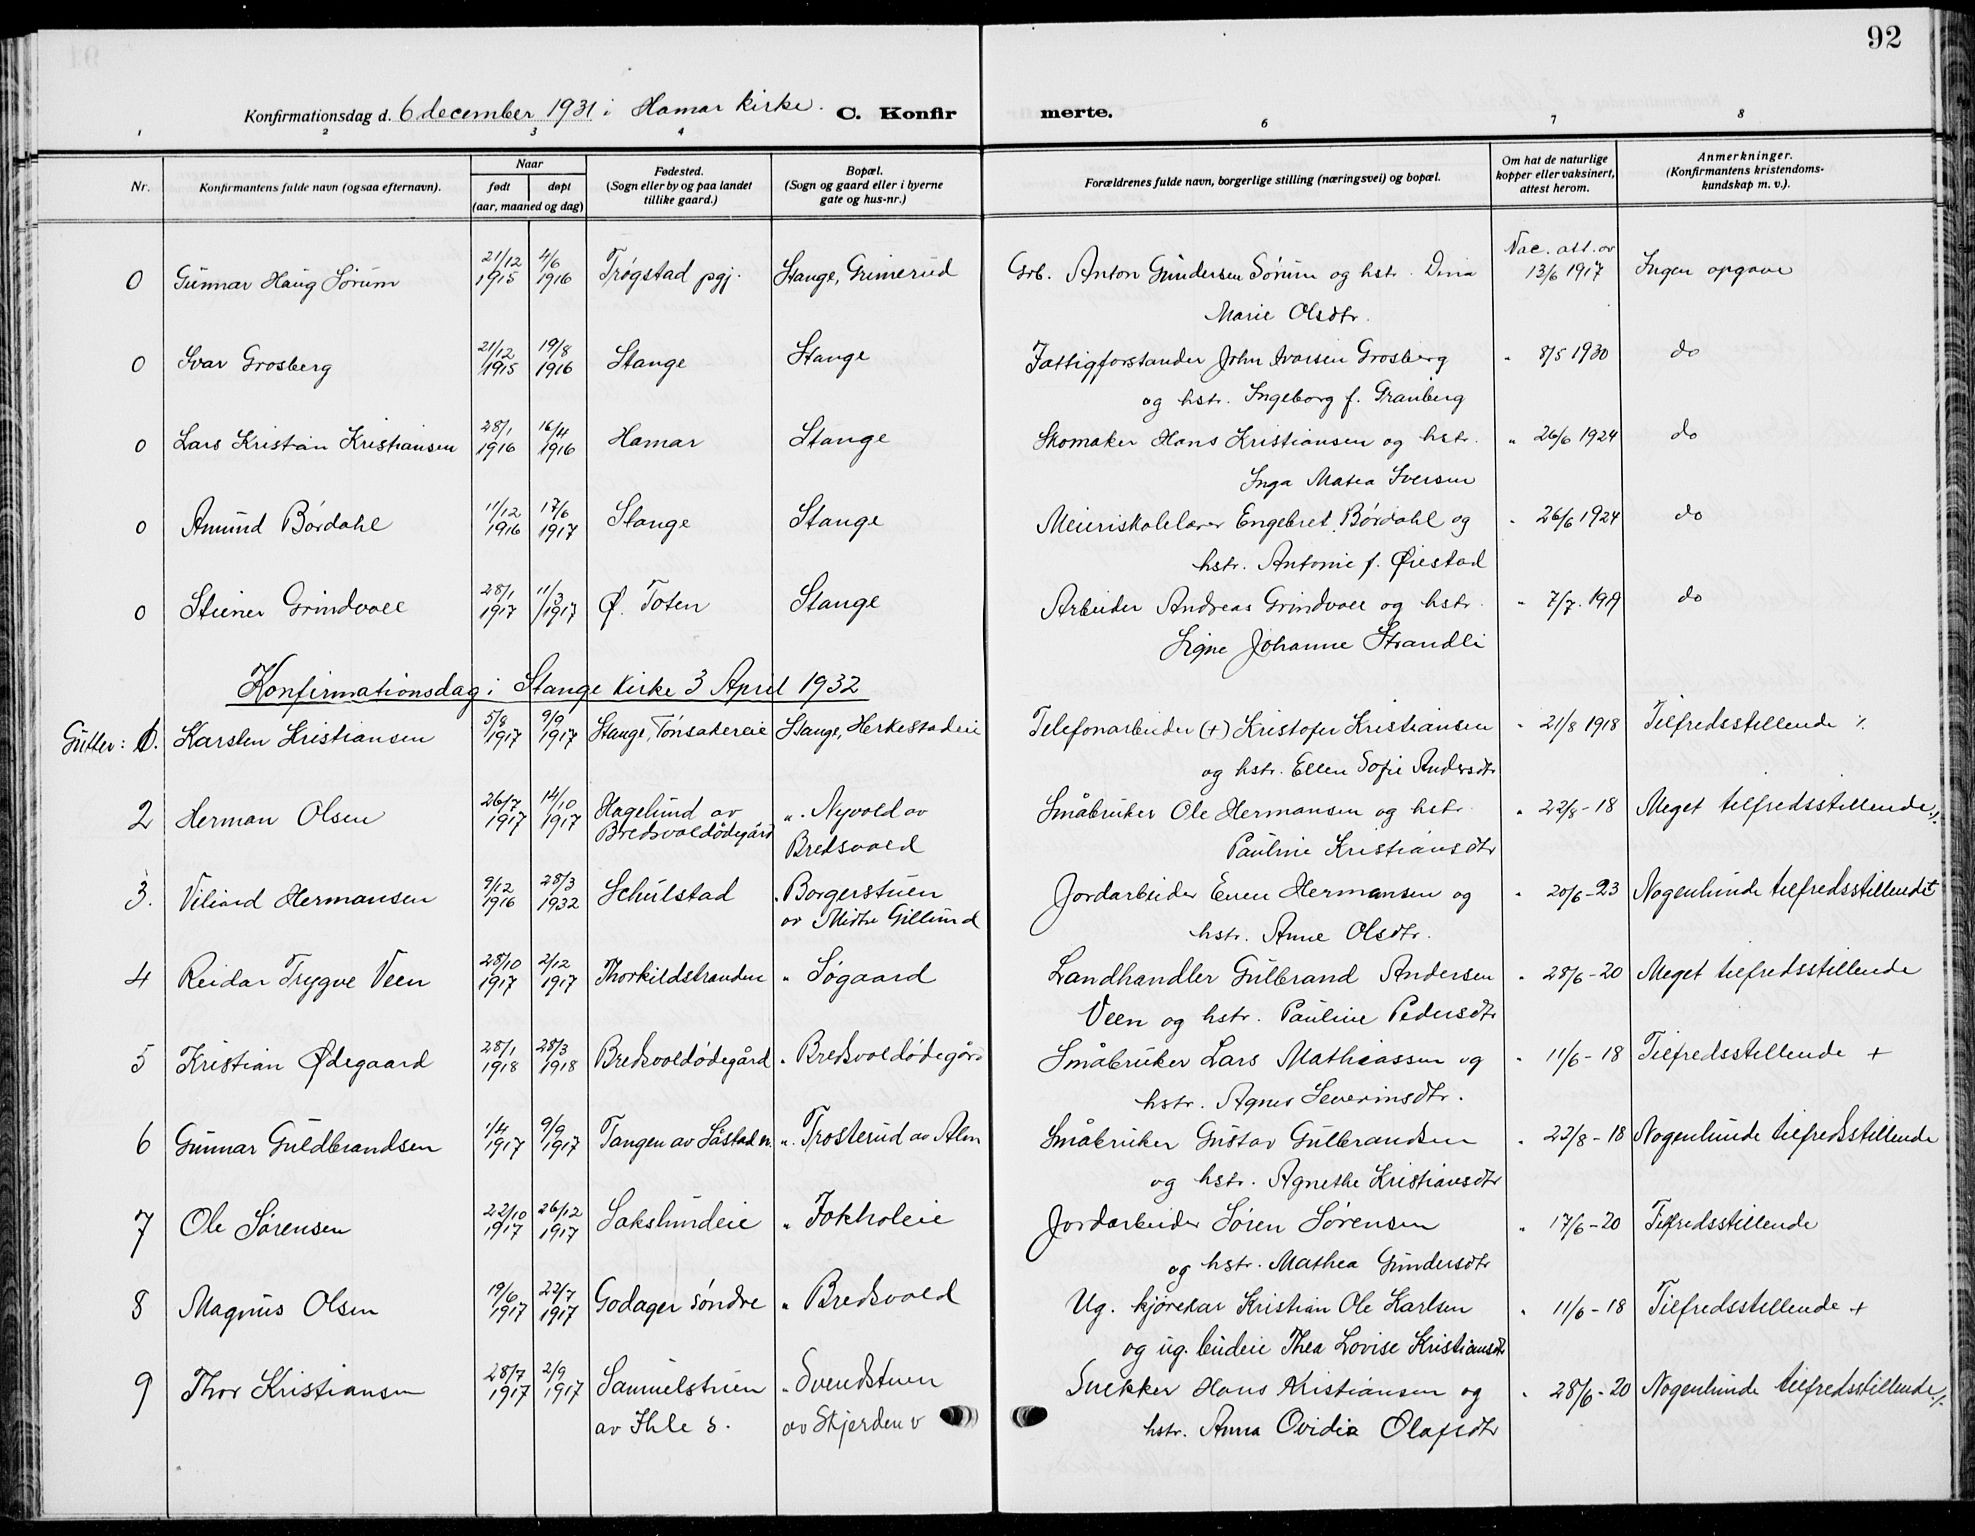 92
Konfirmationsdag d. 6 december 1931 i Hamar kirke. C. Konfir merte.
1 2 3 4 6 7 8
Nr. Konfirmantens fulde navn (ogsaa efternavn). Naar født døpt (aar, maaned og dag) Fødested. (Sogn eller by og paa landet tillike gaard.) Bopæl. (Sogn og gaard eller i byerne gate og hus-nr.) Forældrenes fulde navn, borgerlige stilling (næringsvei) og bopæl. Om hat de naturlige kopper eller vaksinert, attest herom. Anmerkninger. (Konfirmantens kristendoms- kundskap m. v.).
0 Gunnar Haug Sørum 21/12 1915 4/6 1916 Trøgstad pgj. Stange, Grimerud Grb. Anton Gundersen Sørum og hstr. Dina Vac. att. av 13/6 1917 Ingen opgave
Marie Olsdtr.
0 Ivar Grosberg 21/12 1915 19/8 1916 Stange Stange Fattigforstander John Ivarsen Grosberg " 8/5 1930 do
og hstr. Ingeborg f. Granberg
0 Lars Kristian Kristiansen 28/1 1916 16/4 1916 Hamar Stange Skomaker Hans Kristiansen og hstr. " 26/6 1924 do
Inga Matea Iversen
0 Amund Børdahl 11/12 1916 17/6 1917 Stange Stange Meieriskolelærer Engebret Børdahl og " 26/6 1924 do
hstr. Antonie f. Øiestad
0 Steinar Grindvoll 28/1 1917 11/3 1917 Ø. Toten Stange Arbeider Andreas Grindvoll og hstr. " 7/7. 1919 do
Signe Johanne Strandli
Konfirmationsdag i Stange kirke 3 April 1932
Gutter: 1. Karsten Kristiansen 5/8 1917 9/9 1917 Stange, Tønsakereie Stange, Herkestadeie Telefonarbeider (+) Kristofer Kristiansen " 21/8 1918 Tilfredsstillende ./.
og hstr. Ellen Sofie Andersdtr
2 Herman Olsen 26/7 1917 14/10 1917 Hagelund av Bredsvoldødegård ". Nyvold av Bredsvold Småbruker Ole Hermansen og hstr. " 22/8-18 Meget tilfredsstillende ./.
Pauline Kristiansdtr
3. Viliard Hermansen 9/12 1916 28/3 1932 Schulstad " Borgerstuen av Midtre Gillund Jordarbeider Even Hermansen og " 20/6-23 Nogenlunde tilfredsstillende +
hstr. Anne Olsdtr.
4 Reidar Trygve Veen 28/10 1917 2/12 1917 Thorkildstranden " Søgaard Landhandler Gulbrand Andersen " 28/6-20 Meget tilfredsstillende
Veen og hstr. Pauline Pedersdtr
5 Kristian Ødegaard 28/1 1918 28/3 1918 Bredsvoldødegård " Bredsvoldødegård Småbruker Lars Mathiassen og " 11/6-18 Tilfredsstillende +
hstr. Agnes Severinsdtr.
6 Gunnar Guldbrandsen 1/4 1917 9/9 1917 Tangen av Såstad n. ". Trosterud av Alm Småbruker Gustav Gulbrandsen " 22/8-18 Nogenlunde tilfredsstillende
og hstr. Agnethe Kristiansdtr
7 Ole Sørensen 22/10 1917 26/12 1917 Sakslundeie " Fokholeie Jordarbeider Søren Sørensen " 17/6-20 Tilfredsstillende
og hstr. Mathea Gundersdtr
8 Magnus Olsen 19/6 1917 22/7 1917 Godager søndre " Bredsvold Ug. kjørekar Kristian Ole Karlsen " 11/6-18 Tilfredsstillende +
og ug. budeie Thea Lovise Kristiansdtr
9 Thor Kristiansen 28/7 1917 2/9 1917 Samuelstuen av Ihle s. " Svendstuen av Skjerden v Snekker Hans Kristiansen og " 28/6-20 Nogenlunde tilfredsstillende ./.
hstr. Anna Ovidia Olafsdtr